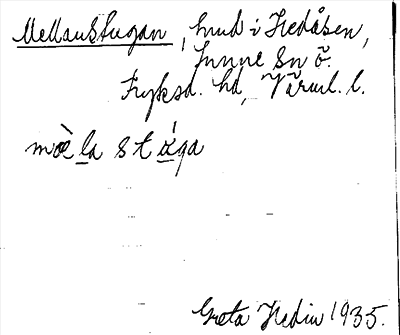 Mellanstugan, hmd i Hedåsen,
Sunne Sn Ö.
Fryksd. hd, Värml. l.
mœ̀la stǽga
Greta Hedin 1935.